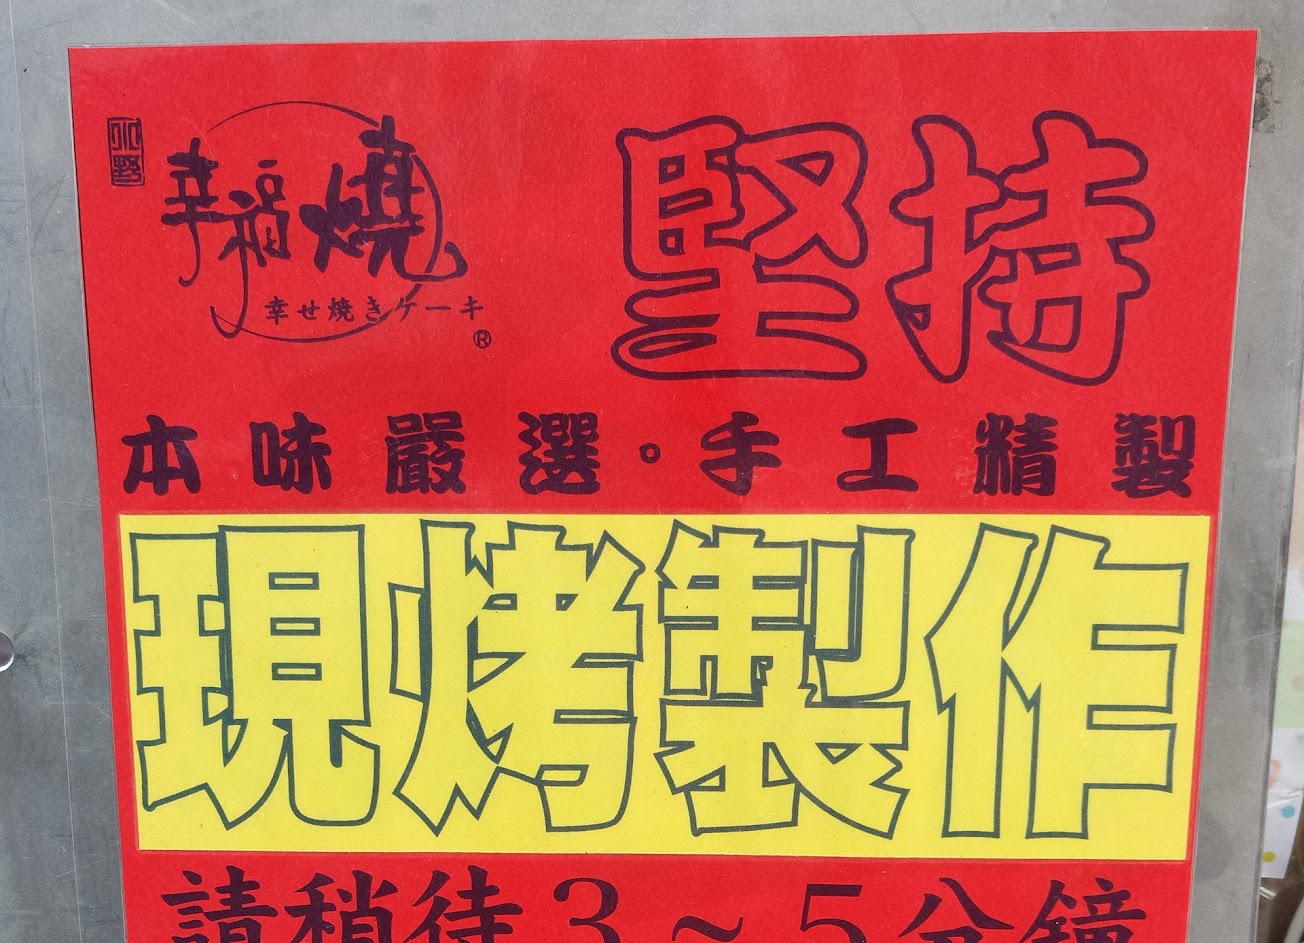 小野
幸福燒
幸せ焼きケーキ
®
堅持
本味嚴選。手工精製
現烤製作
請稍待3~5分鐘